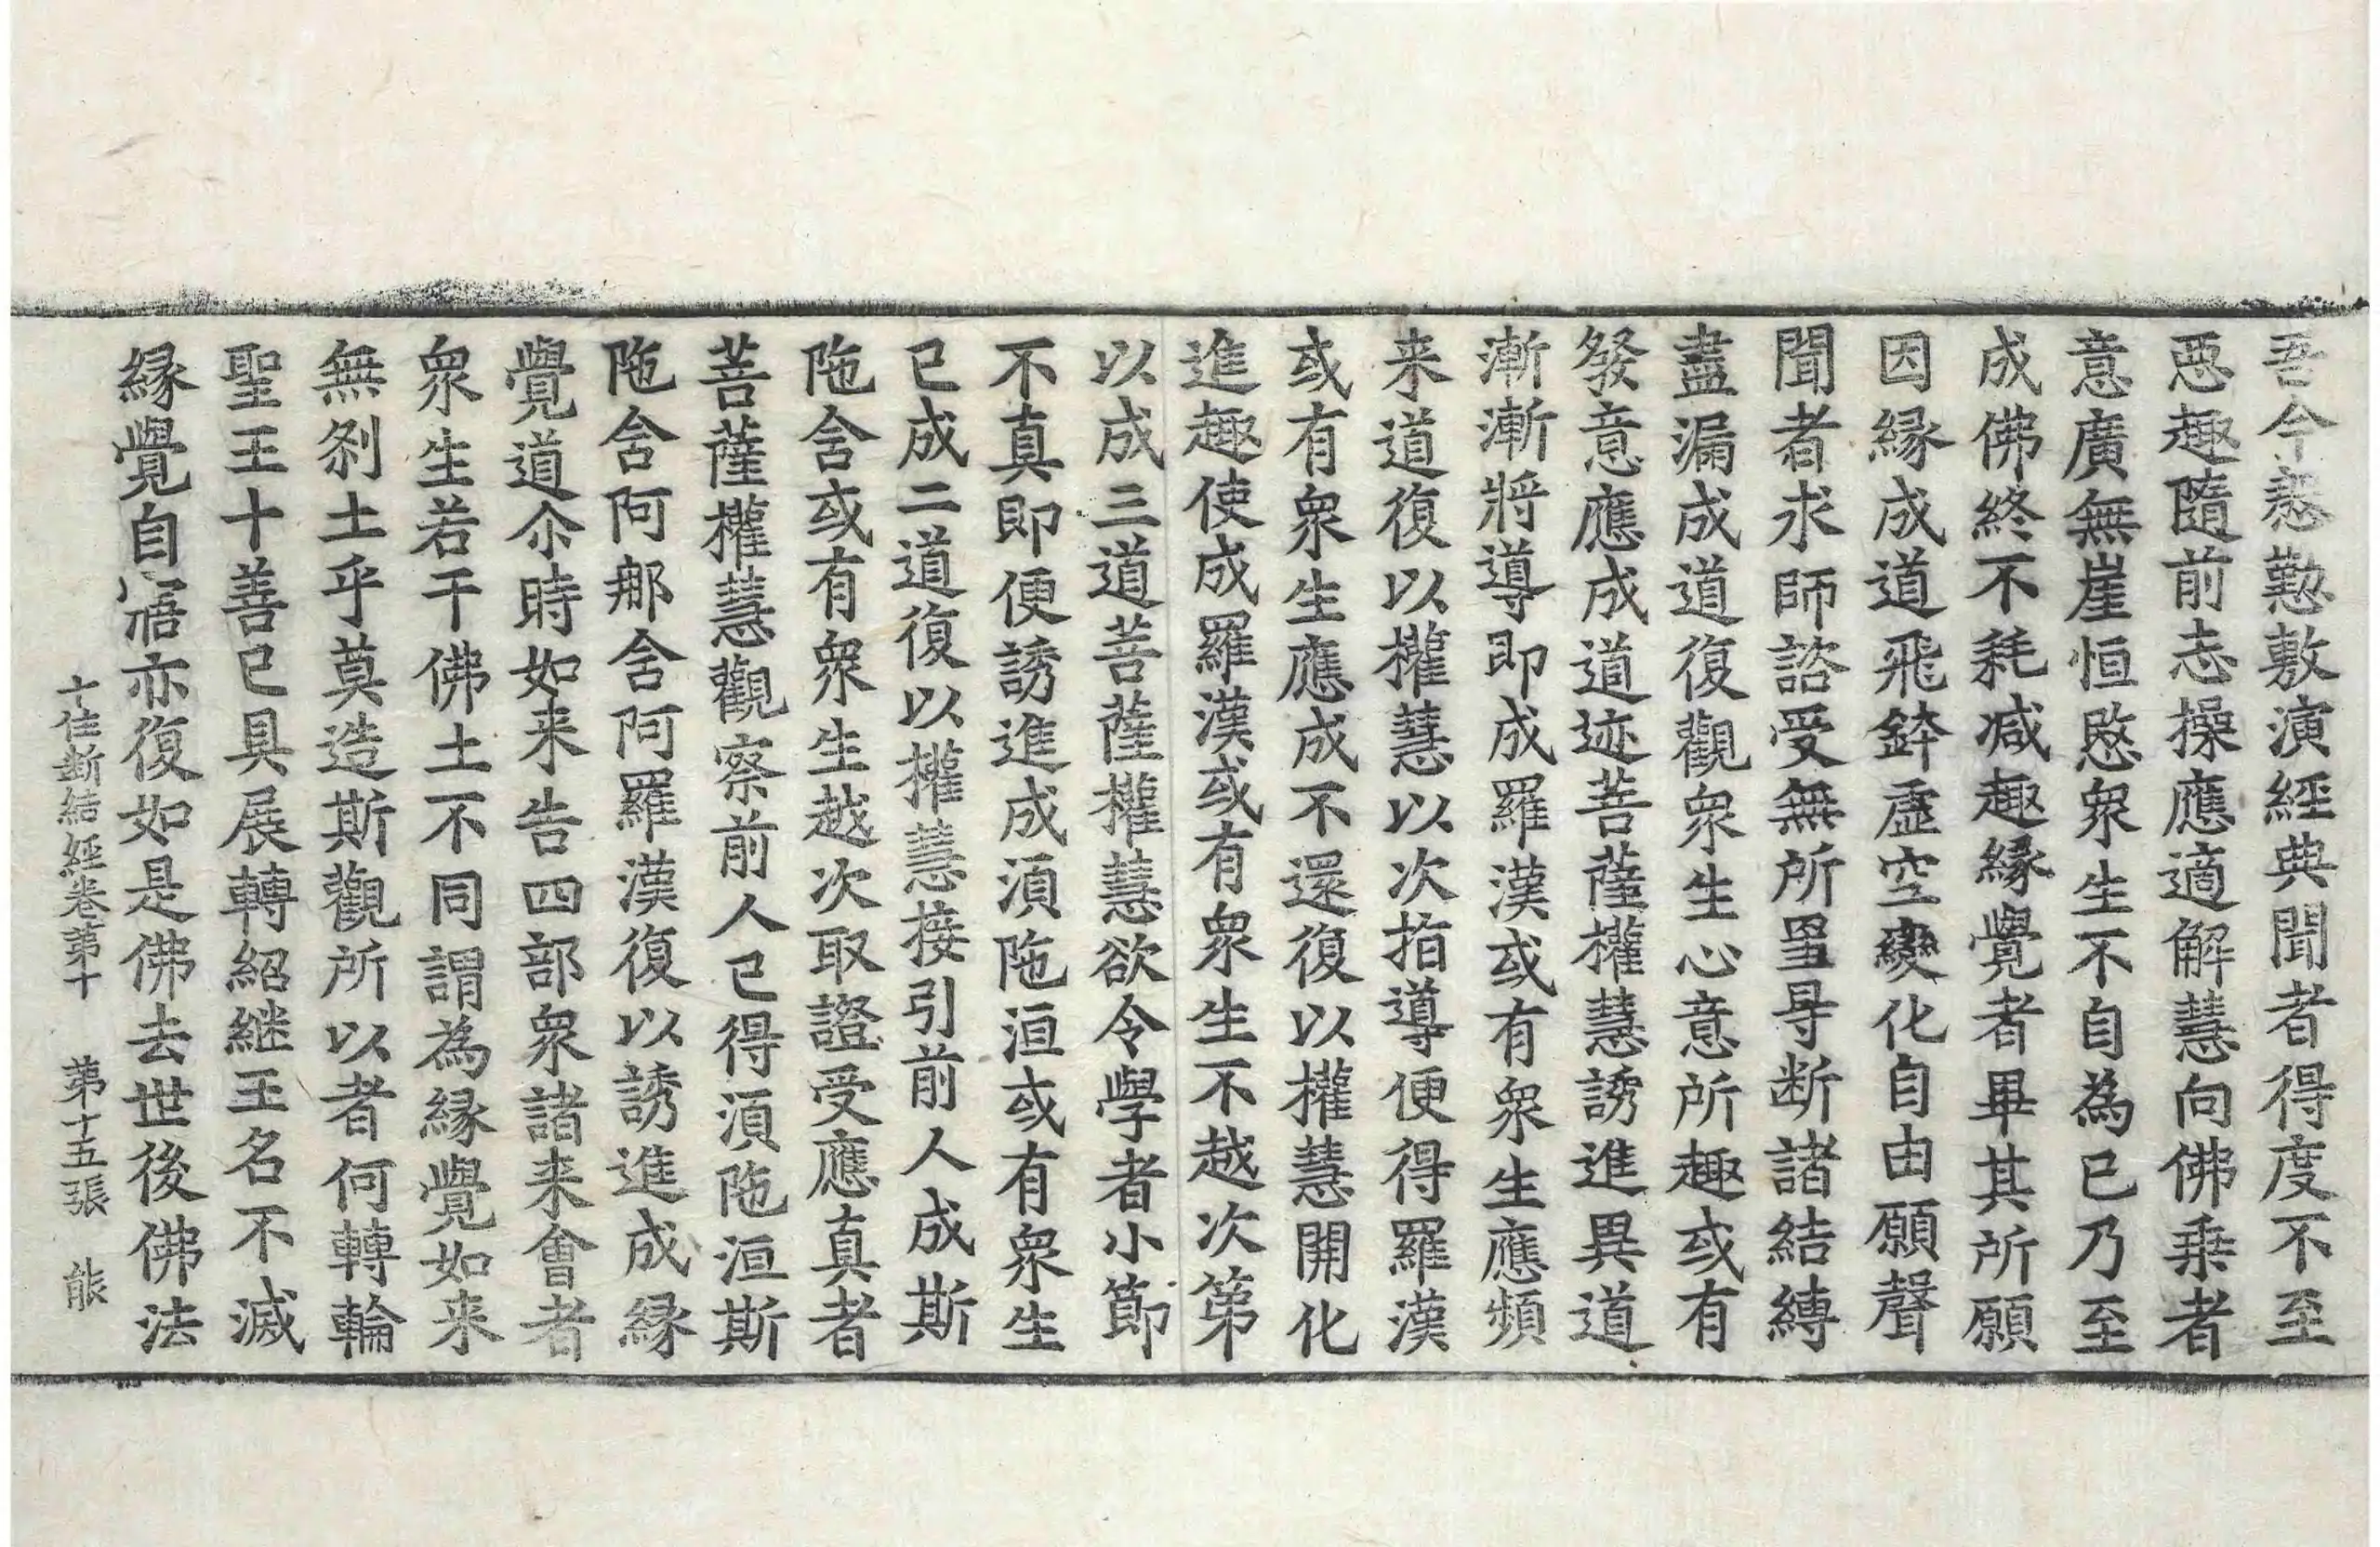 吾今慇懃敷演經典聞者得度不至
惡趣隨前志操應適解慧向佛乗者
意廣無崖恒愍衆生不自為已乃至
成佛終不耗减趣縁覺者畢其所願
因縁成道飛鉢虛空變化自由願聲
聞者求師諮受無所罣㝵断諸結縛
盡漏成道復觀衆生心意所趣或有
發意應成道迹菩薩權慧誘進異道
漸漸將導即成羅漢或有衆生應頻
来道復以權慧以次指導便得羅漢
或有衆生應成不還復以權慧開化
進趣使成羅漢或有衆生不越次第
以成三道菩薩權慧欲令學者小節
不真即便誘進成湏陁洹或有衆生
已成二道復以權慧接引前人成斯
陁含或有衆生越次取證受應真者
菩薩權慧觀察前人已得湏陁洹斯
陁含阿那含阿羅漢復以誘進成縁
覺道尒時如来告四部衆諸来會者
衆生若干佛土不同謂為縁覺如来
無刹土乎莫造斯觀所以者何轉輪
聖王十善已具展轉紹継王名不滅
縁覺自寤亦復如是佛去世後佛法
十住断結經卷第十 第十五張 能